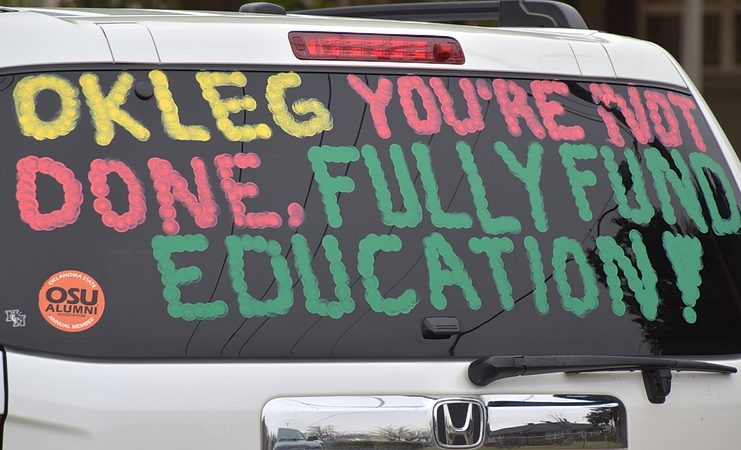 OKLEG YOU'RE NOT
DONE, FULLY FUND
EDUCATION!
OKLAHOMA STATE
OSU
ALUMNI
ASSOCIATION
ANNUAL MEMBER